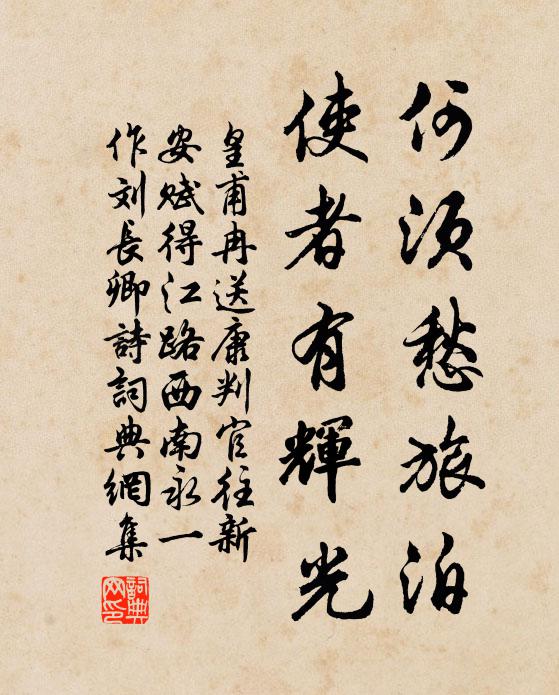 何須愁旅泊
使者有輝光
皇甫冉送康判官往新
安賦得江路西南永一
作刘長卿詩詞典網集
詞典网印